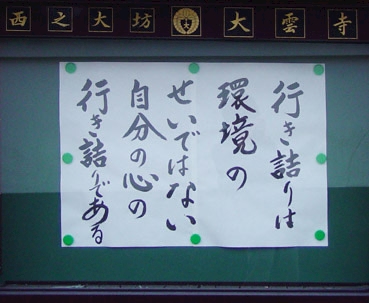 西之大坊 大雲寺
行き詰りは
環境の
せいではない
自分の心の
行き詰りである